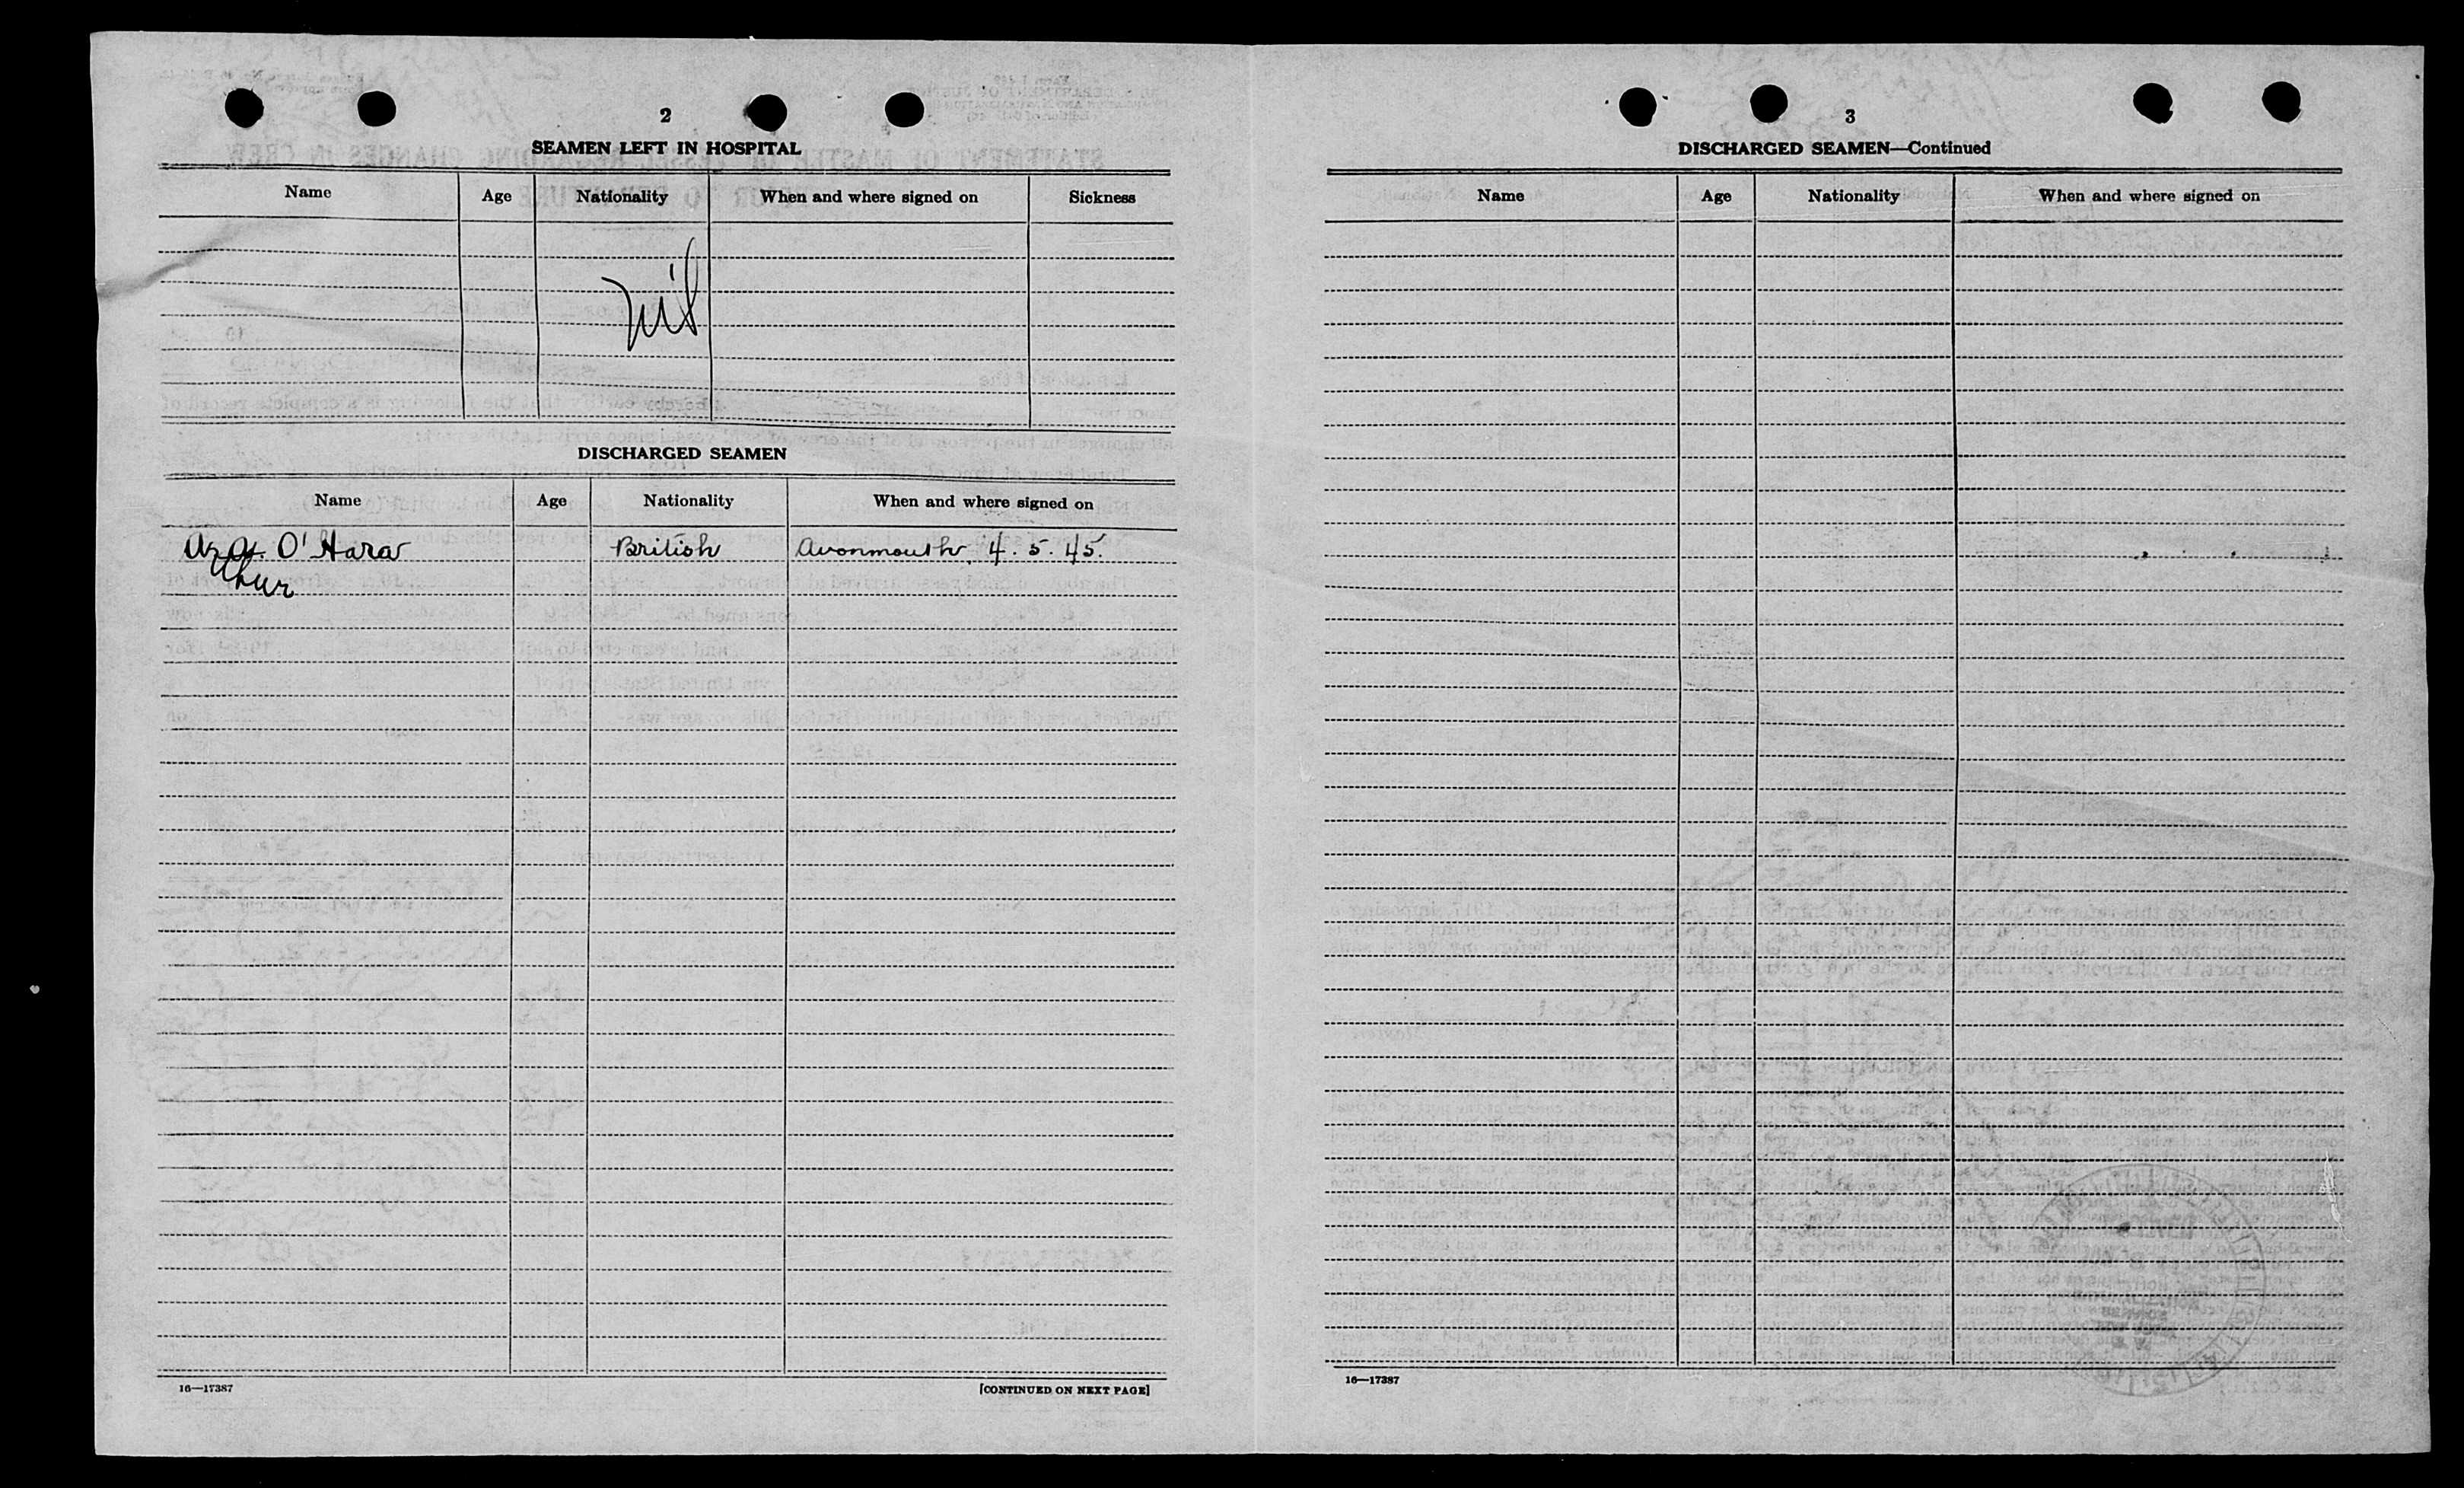 2
SEAMEN LEFT IN HOSPITAL
Name Age Nationality When and where signed on Sickness
Nil
DISCHARGED SEAMEN
Name Age Nationality When and where signed on
O'Hara British Avonmouth 4.5.45.
16—17387 [CONTINUED ON NEXT PAGE]
3
DISCHARGED SEAMEN—Continued
Name Age Nationality When and where signed on
16—17387